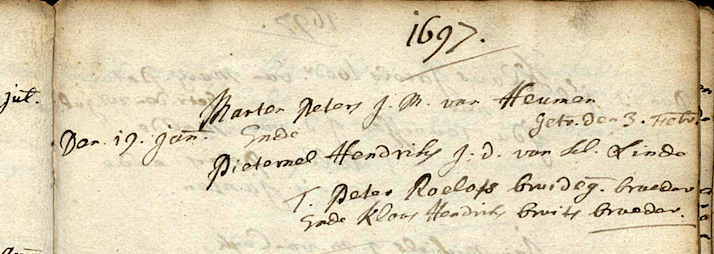 1697.
jul.
Marten Peters J. M. van Heumen
Getr. den 3. Febr.
Den. 19. Jan. Ende
Pieternel Hendriks J. d. van kl. Linde
T. Peter Roelofs bruideg. broeder
Ende Klaas Hendriks bruits broeder.